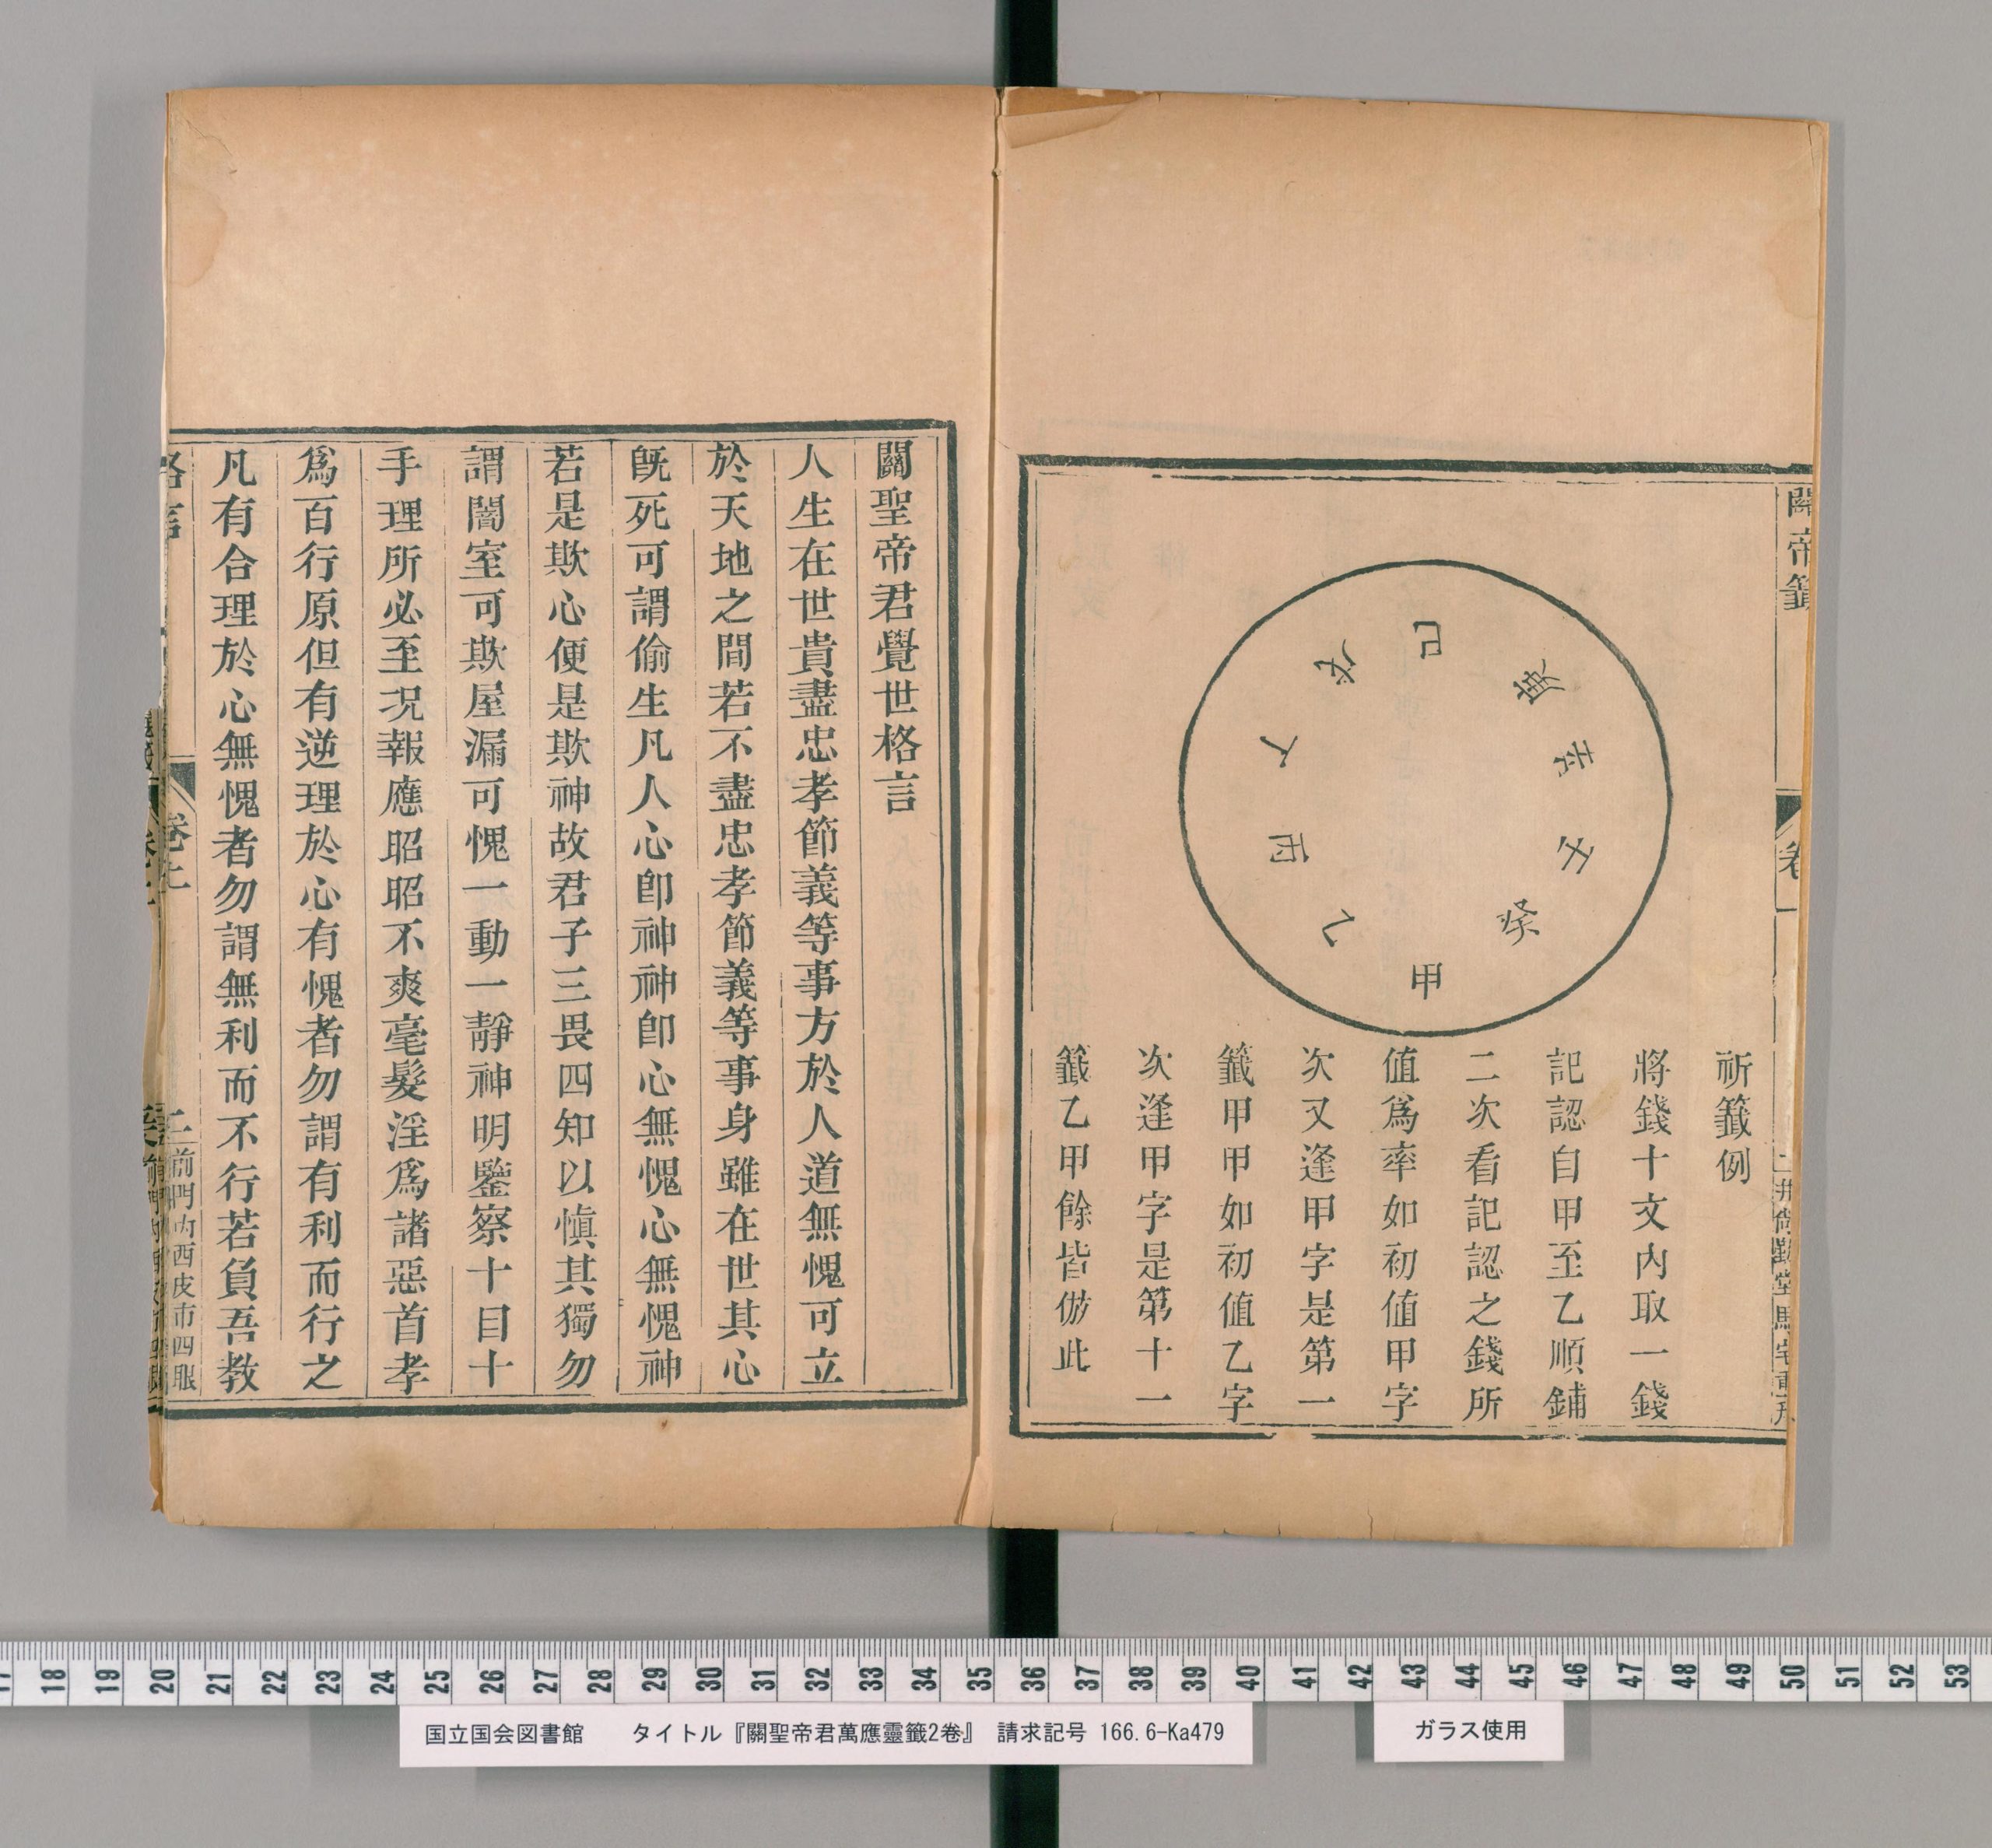 關帝籤
卷
祈籤例
將錢十文內取一錢
記認自甲至乙順鋪
二次看記認之錢所
值爲率如初值甲字
次又逢甲字是第一
籤甲甲如初值乙字
次逢甲字是第十一
籤乙甲餘皆倣此
甲
乙
丙
丁
戊
己
庚
辛
壬
癸
關聖帝君覺世格言
人生在世貴盡忠孝節義等事方於人道無愧可立
於天地之間若不盡忠孝節義等事身雖在世其心
旣死可謂偷生凡人心卽神神卽心無愧心無愧神
若是欺心便是欺神故君子三畏四知以愼其獨勿
謂闇室可欺屋漏可愧一動一靜神明鑒察十目十
手理所必至况報應昭昭不爽毫髮淫爲諸惡首孝
爲百行原但有逆理於心有愧者勿謂有利而行之
凡有合理於心無愧者勿謂無利而不行若負吾教
格言
卷上
二
前門內西皮市四眼
17 18 19 20 21 22 23 24 25 26 27 28 29 30 31 32 33 34 35 36 37 38 39 40 41 42 43 44 45 46 47 48 49 50 51 52 53
国立国会図書館 タイトル『關聖帝君萬應靈籤2卷』 請求記号 166.6-Ka479
ガラス使用